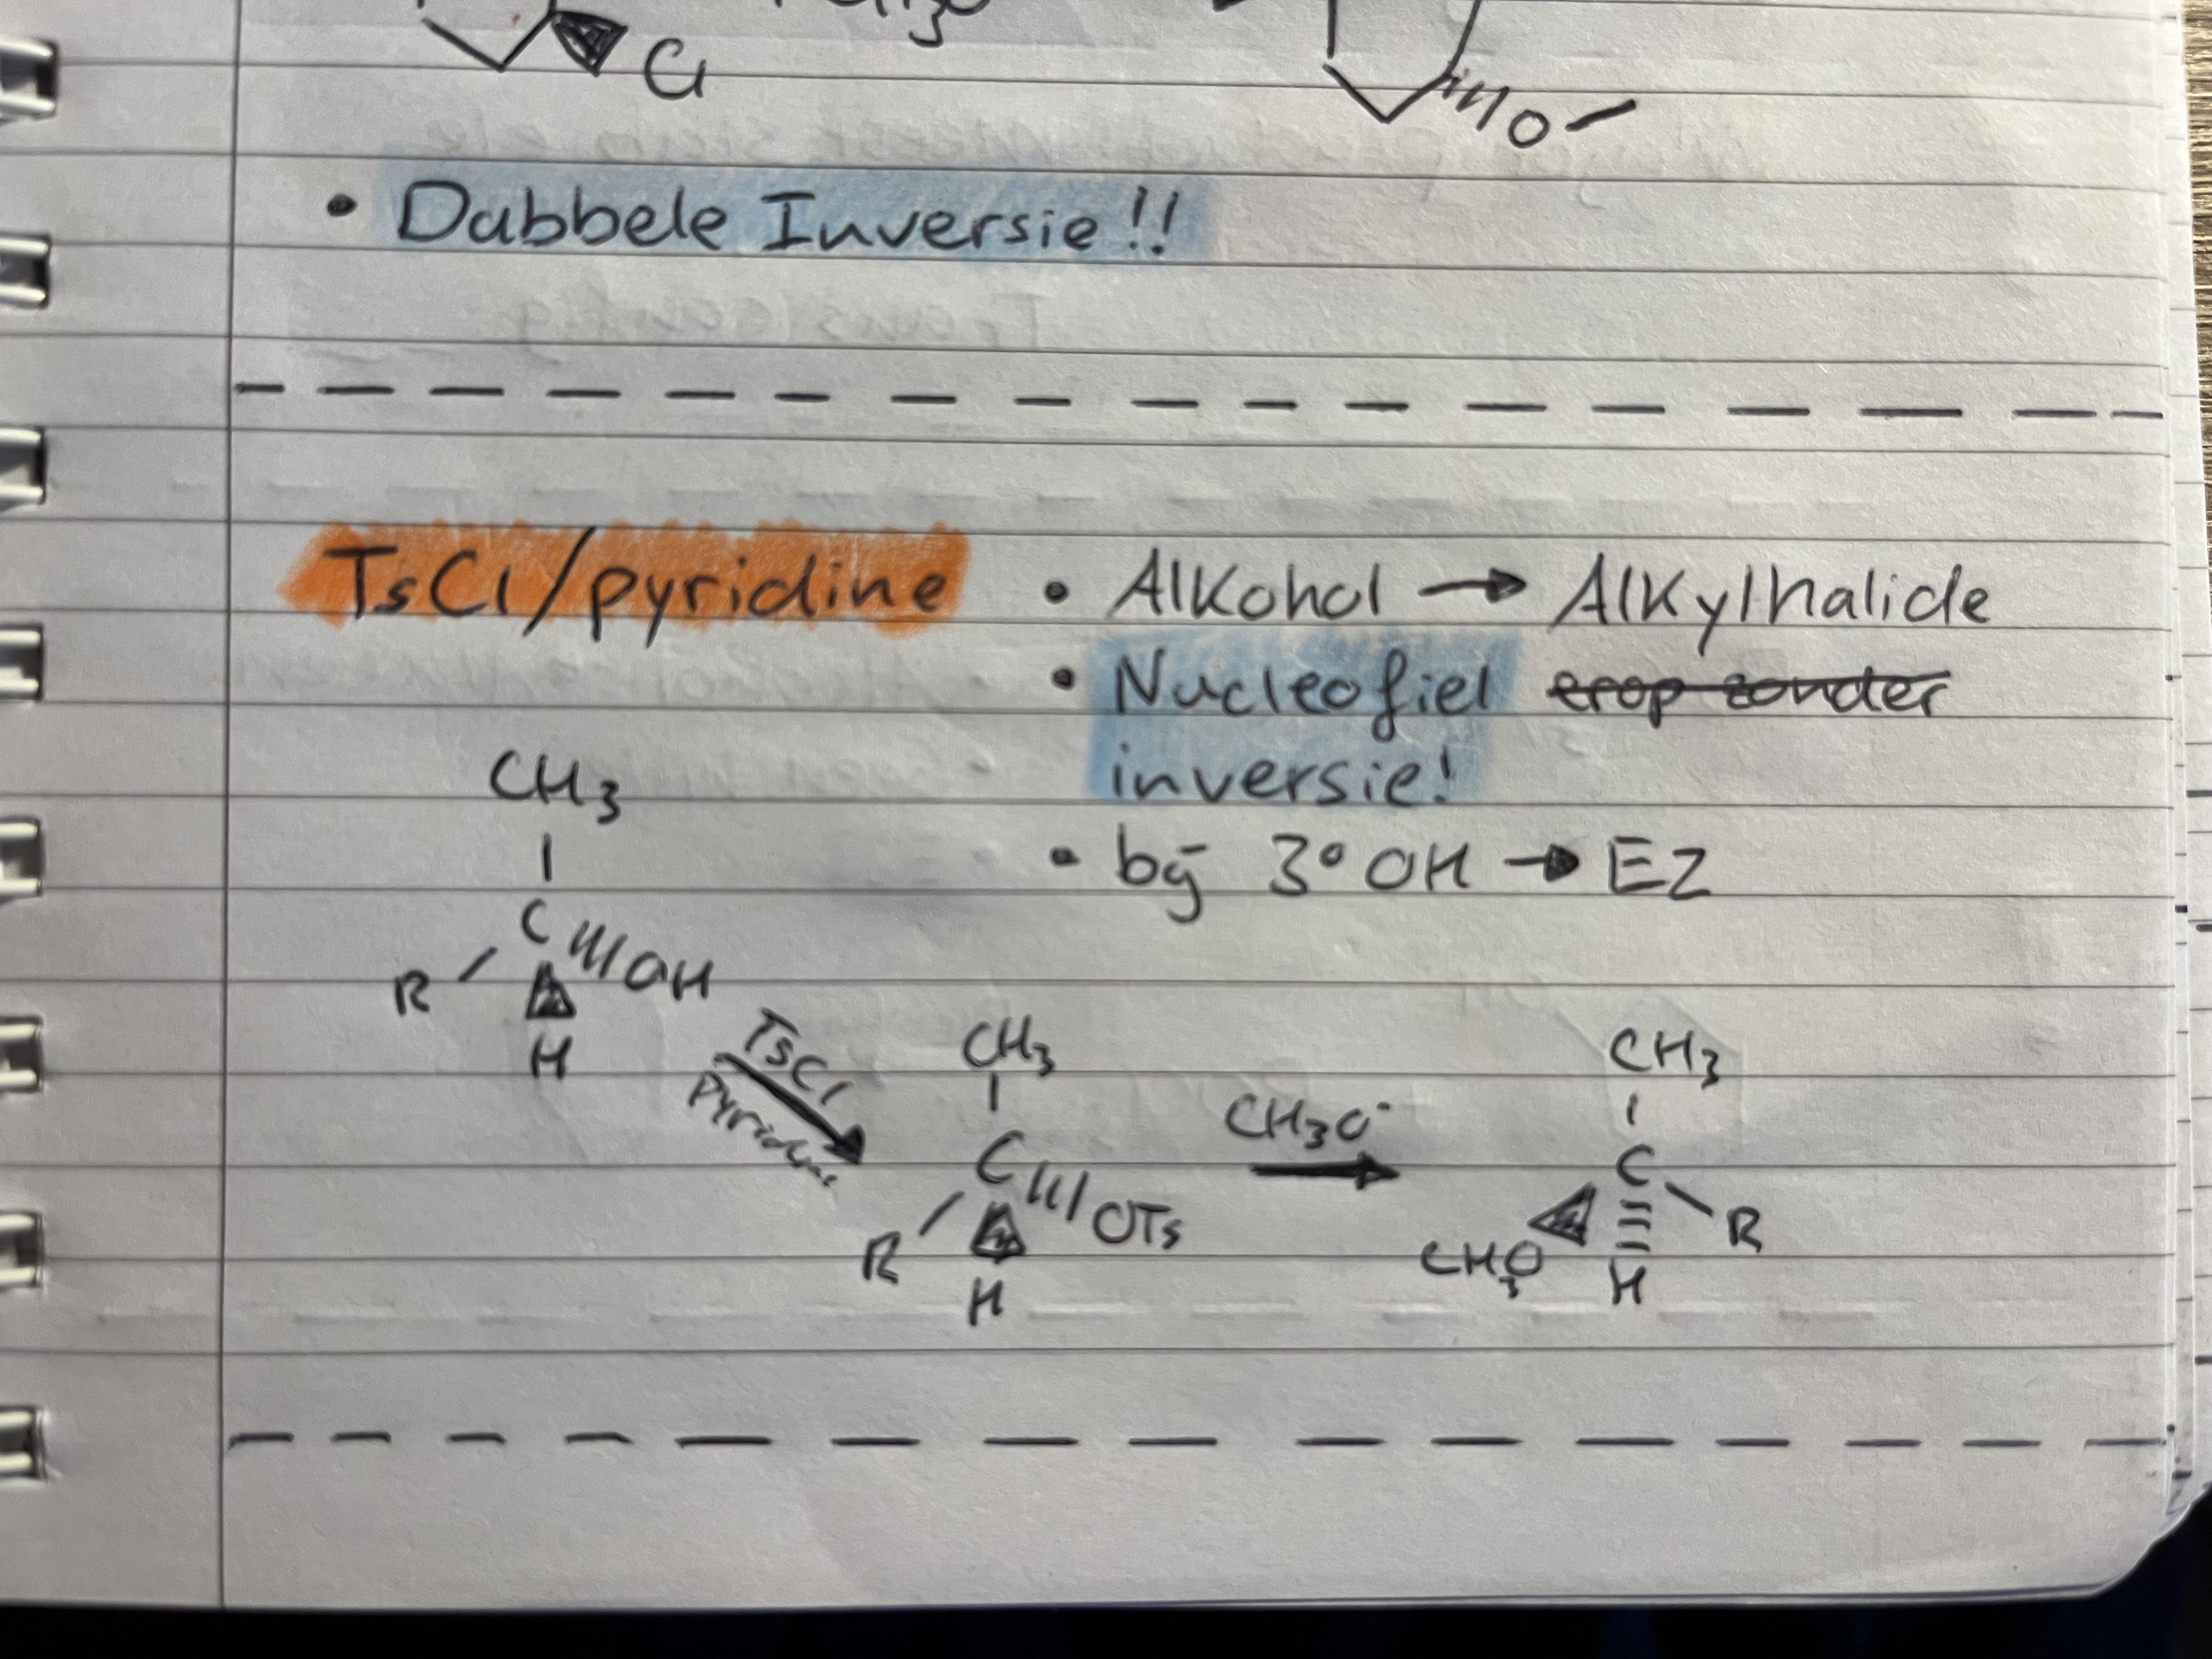 Cl
O
• Dubbele Inversie!!
TsCl/pyridine • Alkohol → Alkylhalide
• Nucleofiel erop zonder
inversie!
• bij 3° OH → E2
CH3
C
R OH
H
TsCl
Pyridine
CH3
C
R OTs
H
CH3O-
CH3
C
CH3O R
H